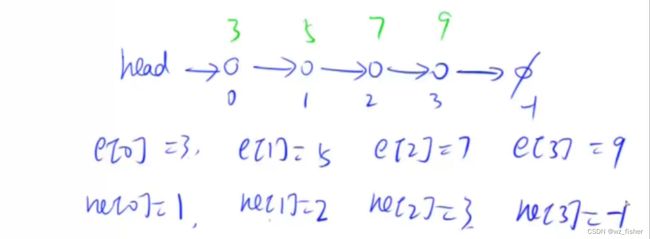 3 5 7 9
head → 0 → 0 → 0 → 0 → ∅
0 1 2 3 -1
e[0]=3, e[1]=5 e[2]=7 e[3]=9
ne[0]=1, ne[1]=2 ne[2]=3 ne[3]=-1
CSDN @wz_fisher